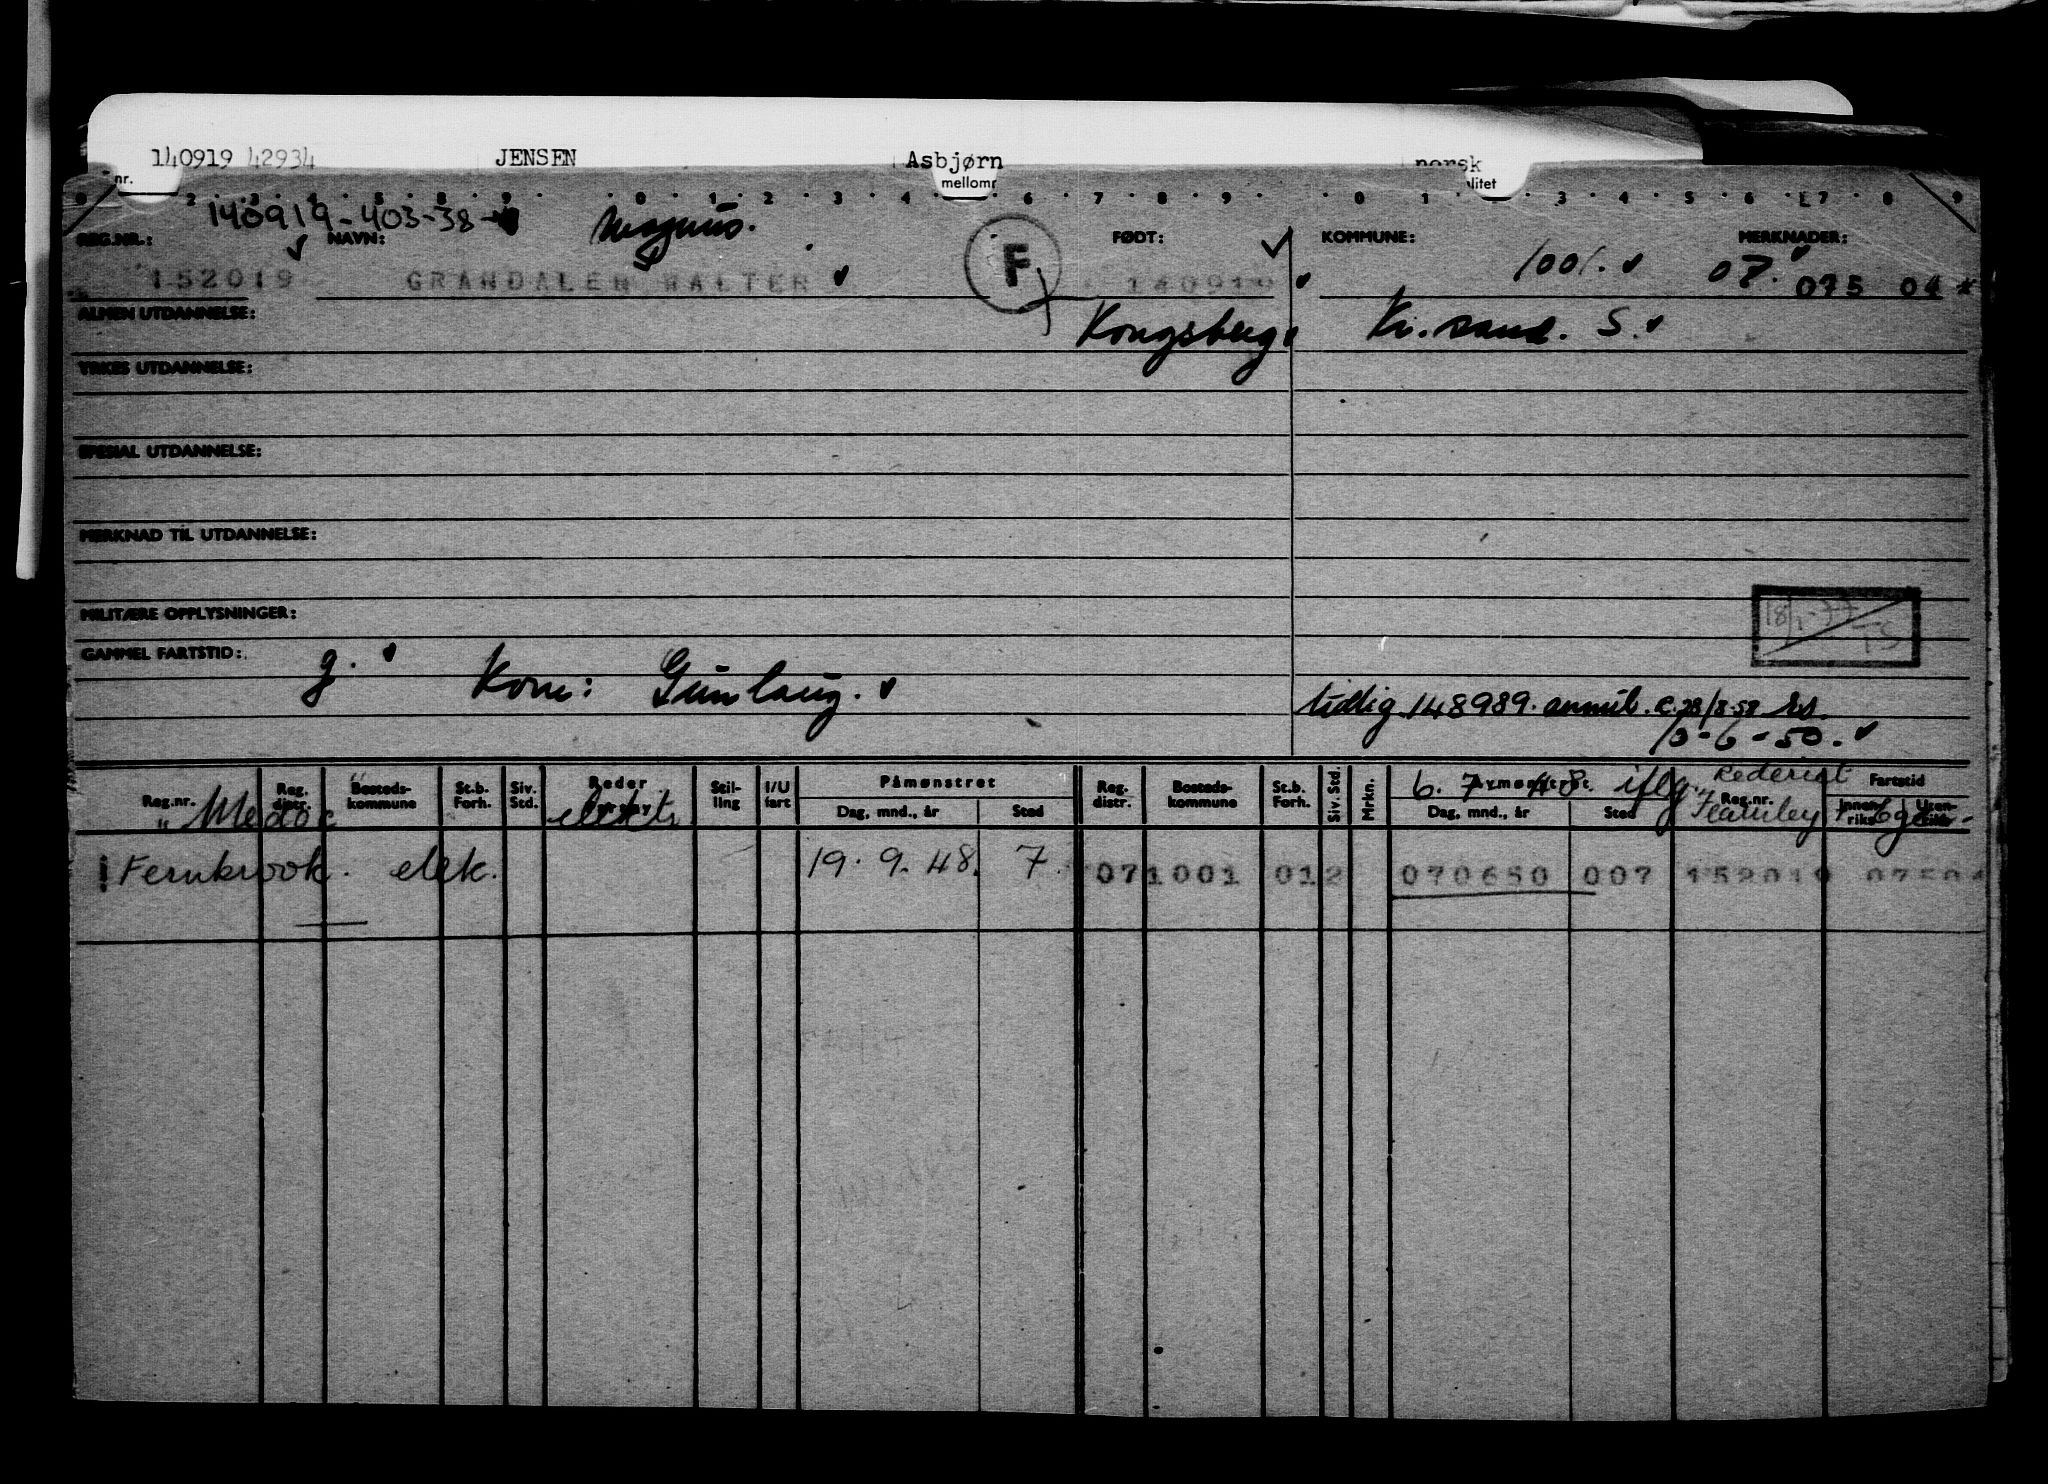 140919 42934 JENSEN Asbjørn norsk
nr. mellomr litet
140919-403-38 Magnus.
REG.NR.: NAVN: F FØDT: KOMMUNE: MERKNADER:
152019 GRANDALEN WALTER 140919 1001. 07. 075 04 *
ALMEN UTDANNELSE: Kongsberg Kr. sand. S.
YRKES UTDANNELSE:
SPESIAL UTDANNELSE:
MERKNAD TIL UTDANNELSE:
MILITÆRE OPPLYSNINGER: 18/1-77 TS
GAMMEL FARTSTID: g. Kone: Gunlaug.
tidlig 148989. annul. e. 28/8-58
13-6-50.
Reg.nr. Reg. distr. Bosteds- kommune St.b. Forh. Siv. Std. Reder Stil- ling I/U fart Påmønstret Dag, mnd., år Sted Reg. distr. Bosteds- kommune St.b. Forh. Siv. Std. Mrkn. Dag, mnd., år Sted Reg.nr. Fartstid Innen- riks Uten- riks
" Medoc 6. 7 iflg. Rederiet
Fernbrook. elek. 19. 9. 48. 7. 07 1001 012 070650 007 152019 07504